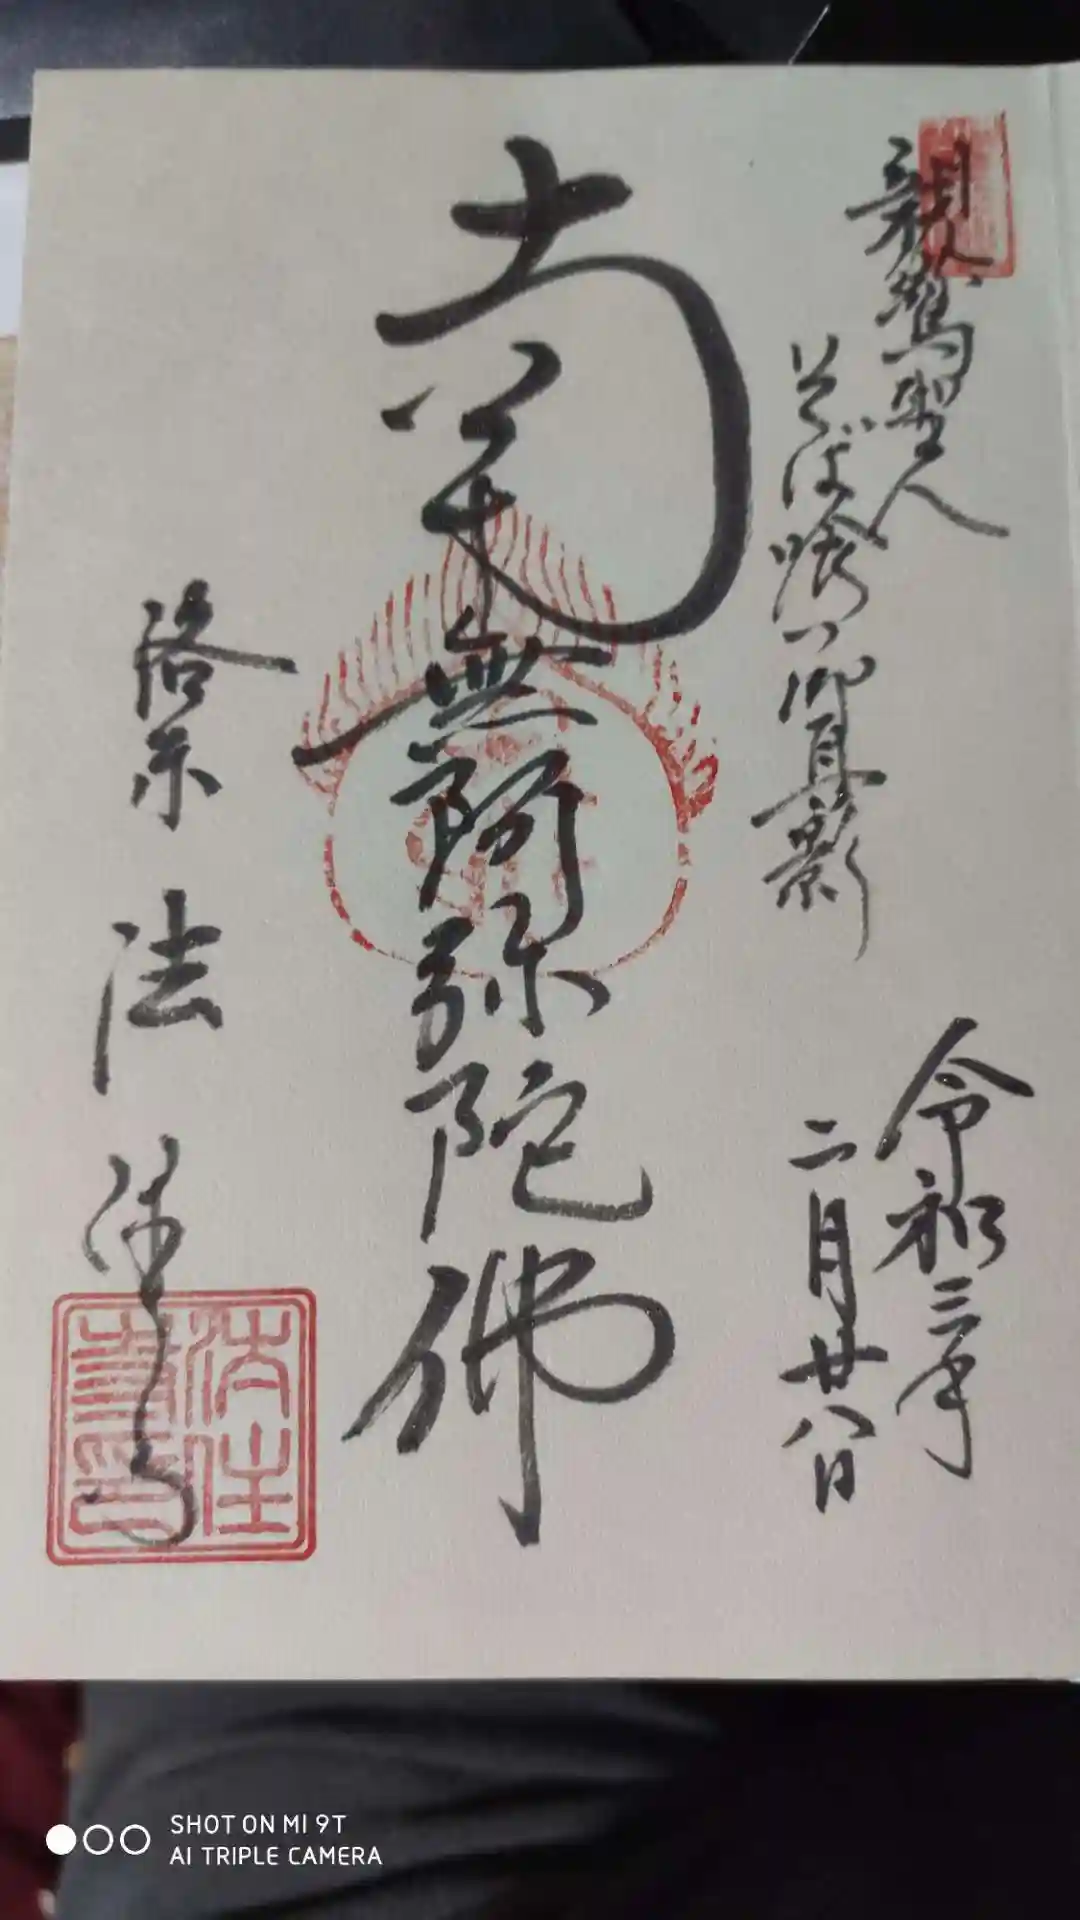 親鸞聖人
そば喰い御真影
令和三年
二月廿八日
南無阿弥陀佛
洛東 法住寺
法住
寺印
SHOT ON MI 9T
AI TRIPLE CAMERA